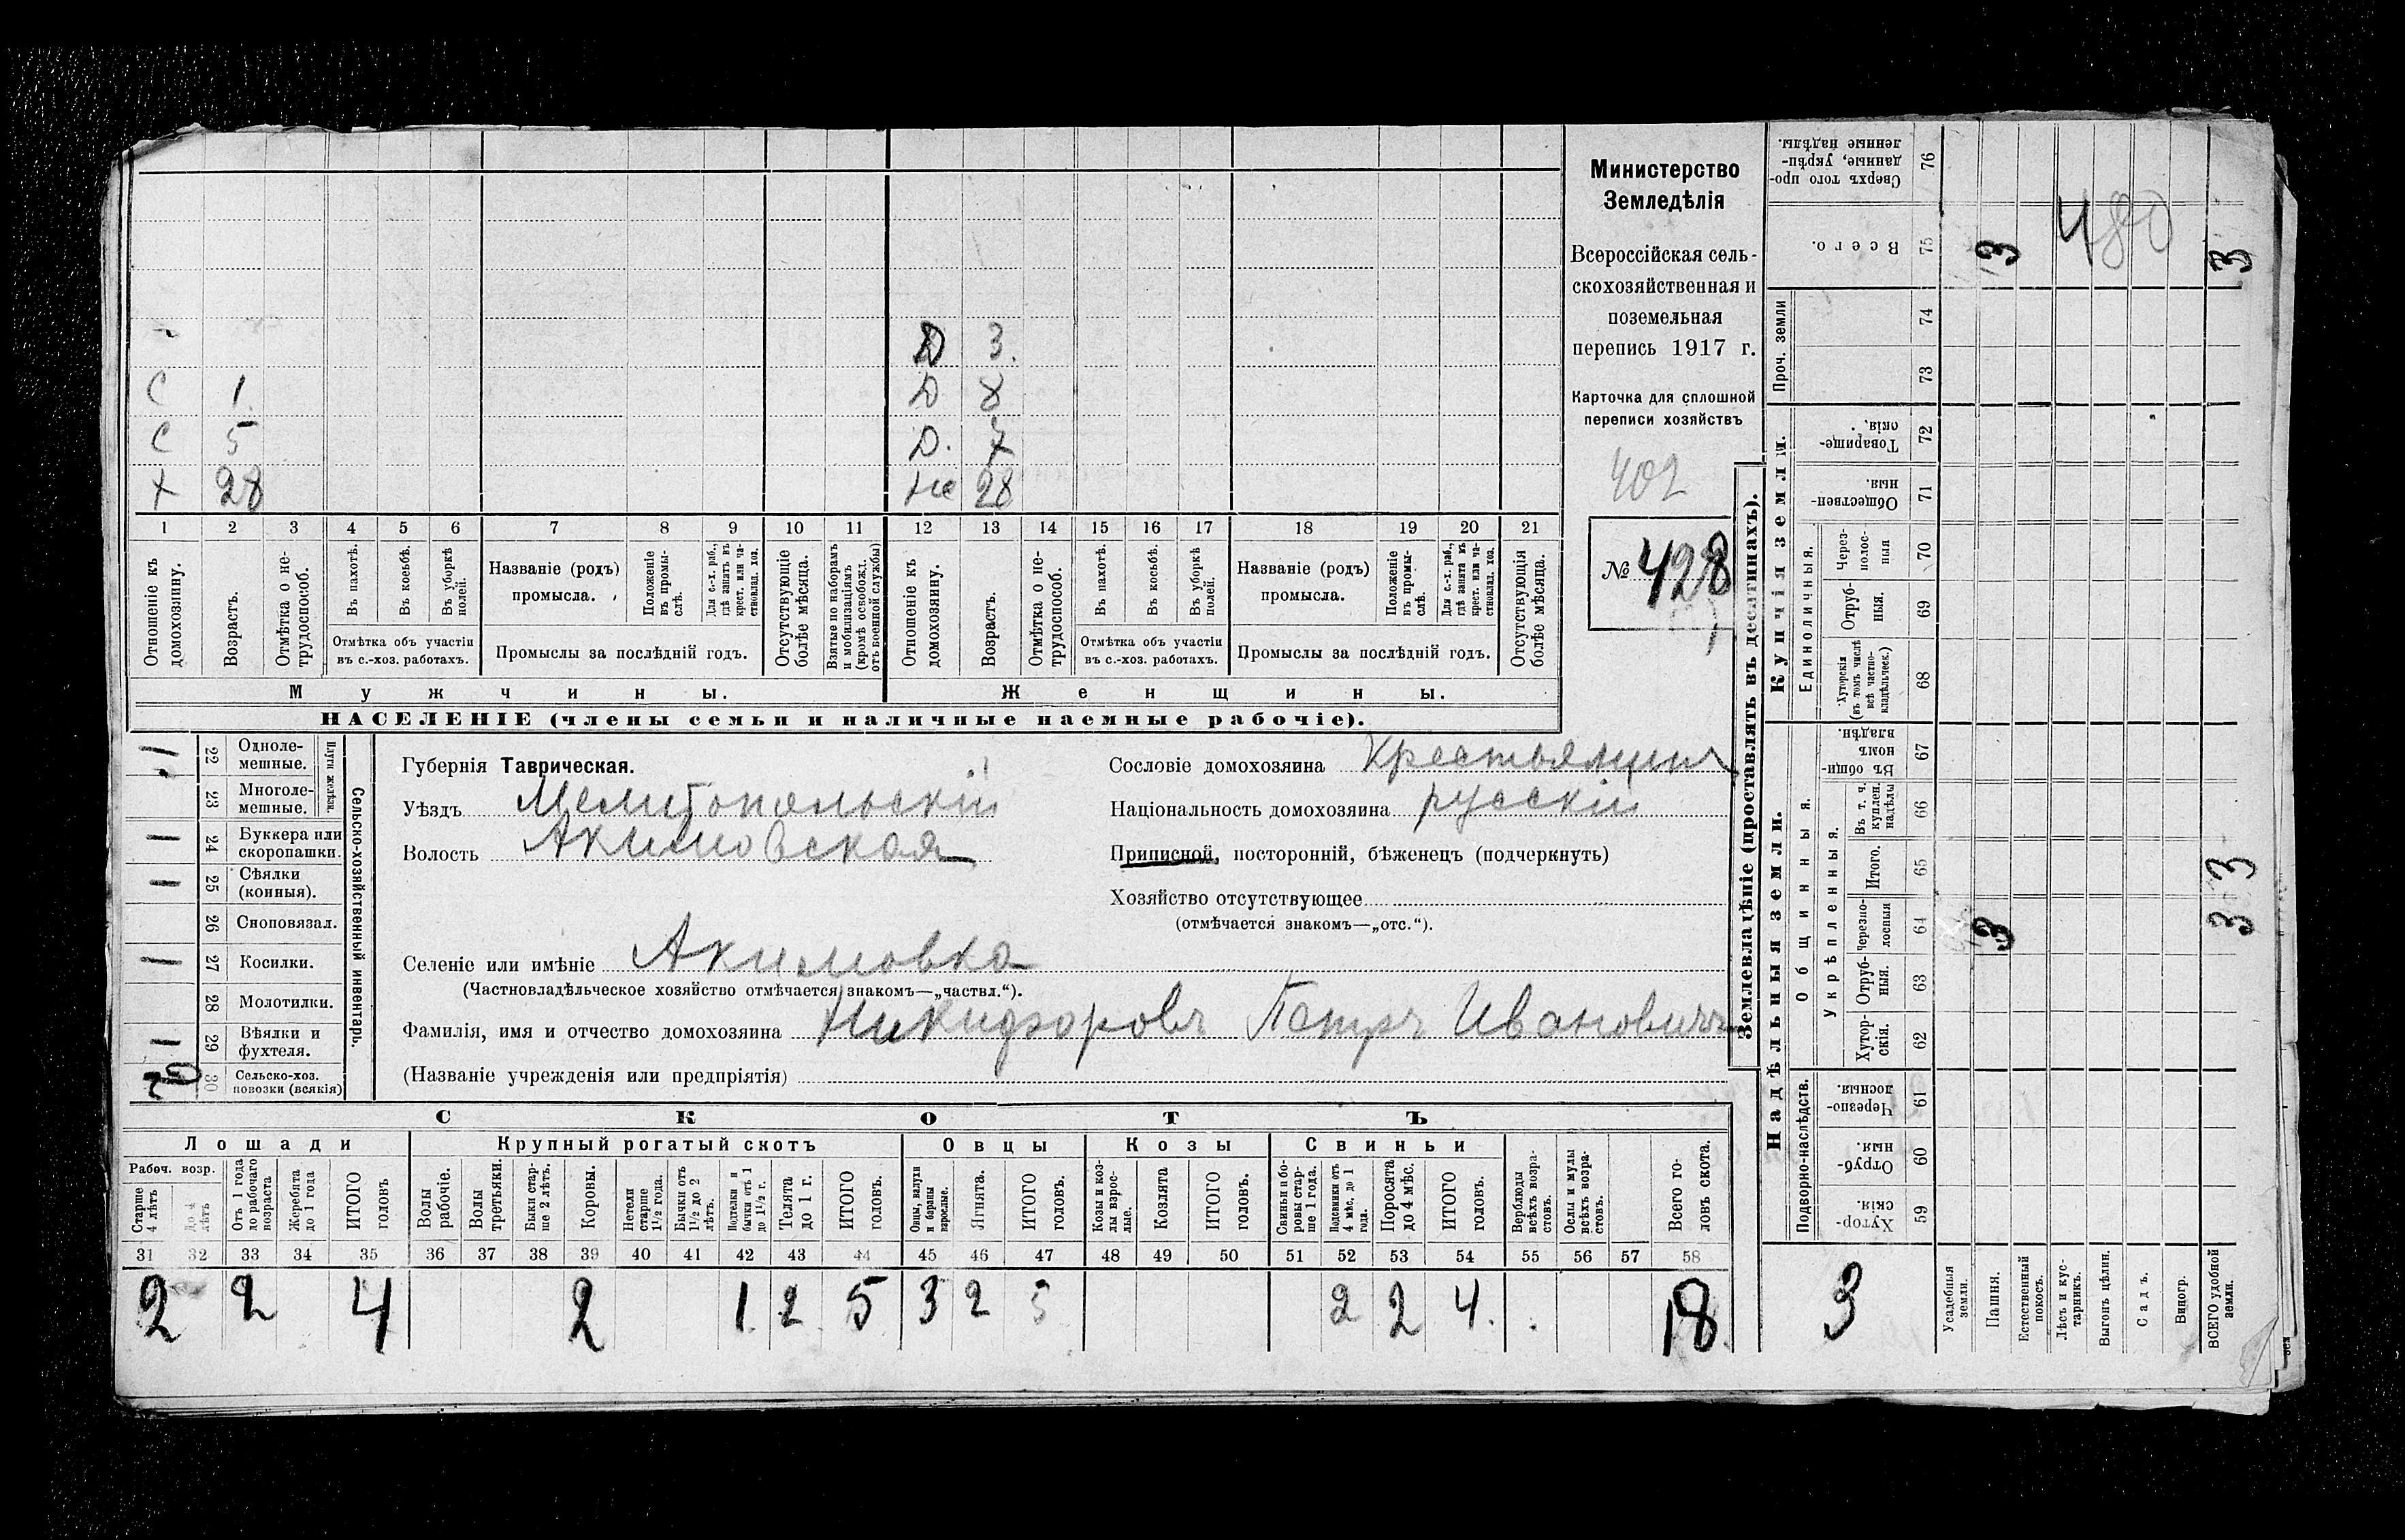 Министерство
Земледѣлія
Всероссійская сель-
скохозяйственная и
поземельная
перепись 1917 г.
Карточка для сплошной
переписи хозяйствъ
402
№ 428
480
Д 3.
С 1 Д 8
С 5 Д. 7
Х 28 Же 28
1 2 3 4 5 6 7 8 9 10 11 12 13 14 15 16 17 18 19 20 21
Отношеніе къ домохозяину.
Возрастъ.
Отмѣтка о не-трудоспособ.
Въ пахотѣ.
Въ косьбѣ.
Въ уборкѣ полей.
Отмѣтка объ участіи
въ с.-хоз. работахъ.
Названіе (родъ)
промысла.
Положеніе въ промы-слѣ.
Для с.-х. раб., гдѣ занятъ въ крест. или ча-стновлад. хоз.
Промыслы за послѣдній годъ.
Отсутствующіе болѣе мѣсяца.
Взятые по наборамъ и мобилизаціямъ (кромѣ освобожд. отъ военной службы)
Отношеніе къ домохозяину.
Возрастъ.
Отмѣтка о не-трудоспособ.
Въ пахотѣ.
Въ косьбѣ.
Въ уборкѣ полей.
Отмѣтка объ участіи
въ с.-хоз. работахъ.
Названіе (родъ)
промысла.
Положеніе въ промы-слѣ.
Для с.-х. раб., гдѣ занята въ крест. или ча-стновлад. хоз.
Промыслы за послѣдній годъ.
Отсутствующія болѣе мѣсяца.
Мужчины. Женщины.
НАСЕЛЕНІЕ (члены семьи и наличные наемные рабочіе).
1 22 Однолемешные.
23 Многоле-мешные.
Плуги желѣзн.
1 24 Буккера или скоропашки.
1 25 Сѣялки (конныя).
26 Сноповязал.
1 27 Косилки.
28 Молотилки.
1 29 Вѣялки и фухтеля.
30 Сельско-хоз. повозки (всякія)
Сельско-хозяйственный инвентарь.
Губернія Таврическая.
Уѣздъ Мелитопольскій
Волость Акимовская
Селеніе или имѣніе Акимовка
(Частновладѣльческое хозяйство отмѣчается знакомъ—„частвл.“).
Фамилія, имя и отчество домохозяина Никифоровъ Петръ Ивановичъ
(Названіе учрежденія или предпріятія)
Сословіе домохозяина Крестьянинъ
Національность домохозяина русскій
Приписной, посторонній, бѣженецъ (подчеркнуть)
Хозяйство отсутствующее
(отмѣчается знакомъ—„отс.“).
СКОТЪ
Лошади Крупный рогатый скотъ Овцы Козы Свиньи
Рабоч. возр.
Старше 4 лѣтъ
До 4 лѣтъ
Отъ 1 года до рабочаго возраста
Жеребята до 1 года
ИТОГО головъ
Волы рабочіе.
Волы третьяки.
Быки стар-ше 2 лѣтъ.
Коровы.
Нетели старше 1½ года.
Бычки отъ 1½ до 2 лѣтъ.
Подтелки и бычки отъ 1 до 1½ г.
Телята до 1 г.
ИТОГО головъ.
Овцы, валухи и бараны взрослые.
Ягнята.
ИТОГО головъ.
Козы и коз-лы взрос-лые.
Козлята
ИТОГО головъ.
Свиньи и бо-ровы стар-ше 1 года.
Подсвинки отъ 4 мѣс. до 1 года.
Поросята до 4 мѣс.
ИТОГО головъ.
Верблюды всѣхъ возра-стовъ.
Ослы и мулы всѣхъ возра-стовъ.
Всего го-ловъ скота.
31 32 33 34 35 36 37 38 39 40 41 42 43 44 45 46 47 48 49 50 51 52 53 54 55 56 57 58
2 2 4 2 1 2 5 3 2 5 2 2 4. 18
Землевладѣніе (проставлять въ десятинахъ).
Купчія земли.
Надѣльныя земли.
Проч. земли
Единоличныя.
Общинныя.
Укрѣпленныя.
Подворно-наслѣдств.
Сверхъ того про-данные, укрѣп-ленные надѣлы. 76
Всего. 75 3 3
74
73
Товарище-скія. 72
Обществен-ныя. 71
Через-полос-ныя 70
Отруб-ныя. 69
Хуторскія (въ томъ числѣ всѣ частно-владѣльческ.) 68
Въ общин-номъ владѣн. 67
Въ т. ч. куплен. надѣлы 66
Итого. 65 3
Черезпо-лосныя 64 3 3
Отруб-ныя. 63
Хутор-скія. 62
Черезпо-лосныя. 61
Отруб-ныя. 60
Хутор-скія. 59
3
Усадебныя земли.
Пашня.
Естественный покосъ.
Лѣсъ и кус-тарникъ.
Выгонъ цѣлин.
Садъ.
Виногр.
ВСЕГО удобной земли.